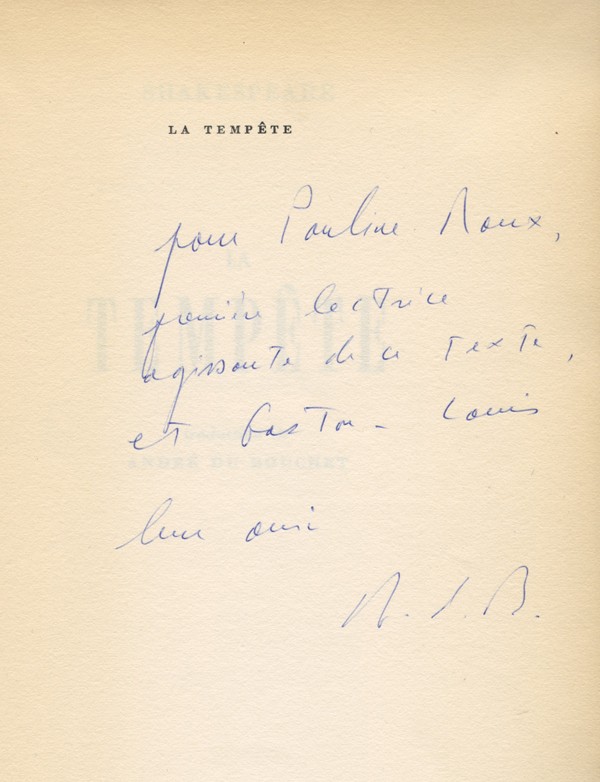 SHAKESPEARE
LA TEMPÊTE
pour Pauline Roux,
LA
première lectrice
TEMPÊTE
agissante de ce texte,
et Gaston-Louis
ANDRÉ DU BOUCHET
leur ami
A. d. B.